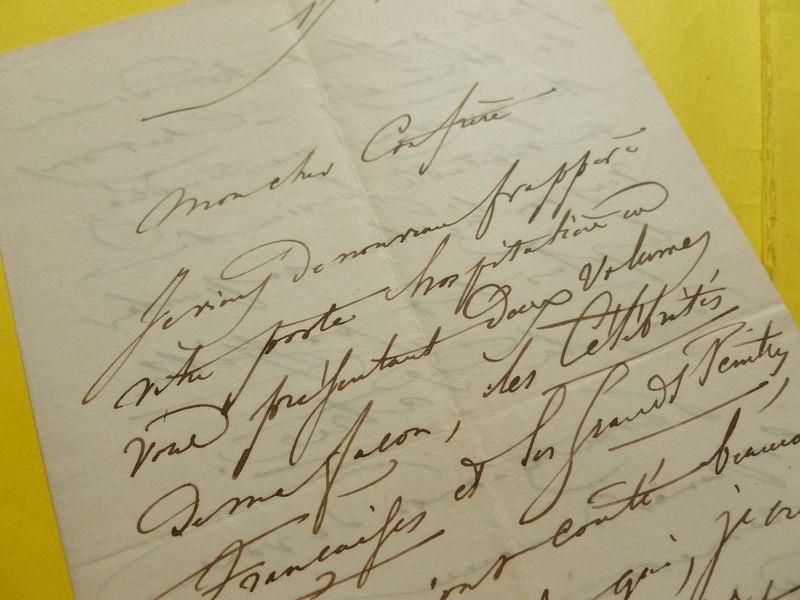 Mon cher Confrère
Je viens de nouveau frapper à
votre porte hospitalière en
vous présentant deux volumes
de ma façon, les Célébrités
Françaises et les Grands Peintres
m'ont coûté beauco
qui, je